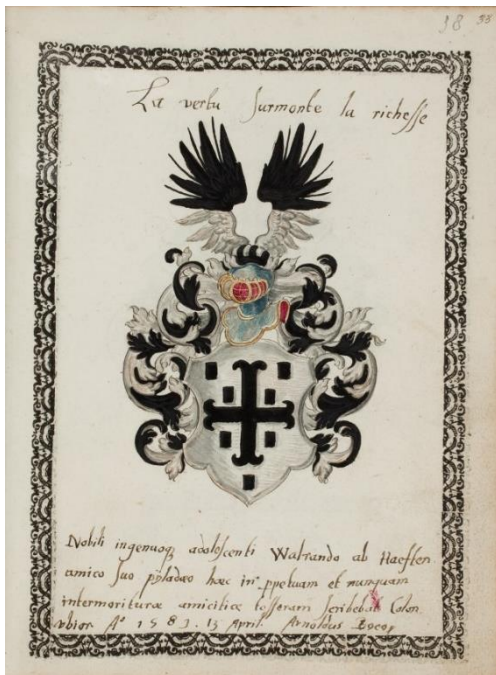 38 38
La vertu surmonte la richesse
Nobili ingenuoq, adolescenti Walrando ab Haeften
amico suo pyladaeo haec in ppetuam et nunquam
intermoriturae amicitiae tesseram scribebat Colon.
Aº 1583. 13 April. Arnoldus